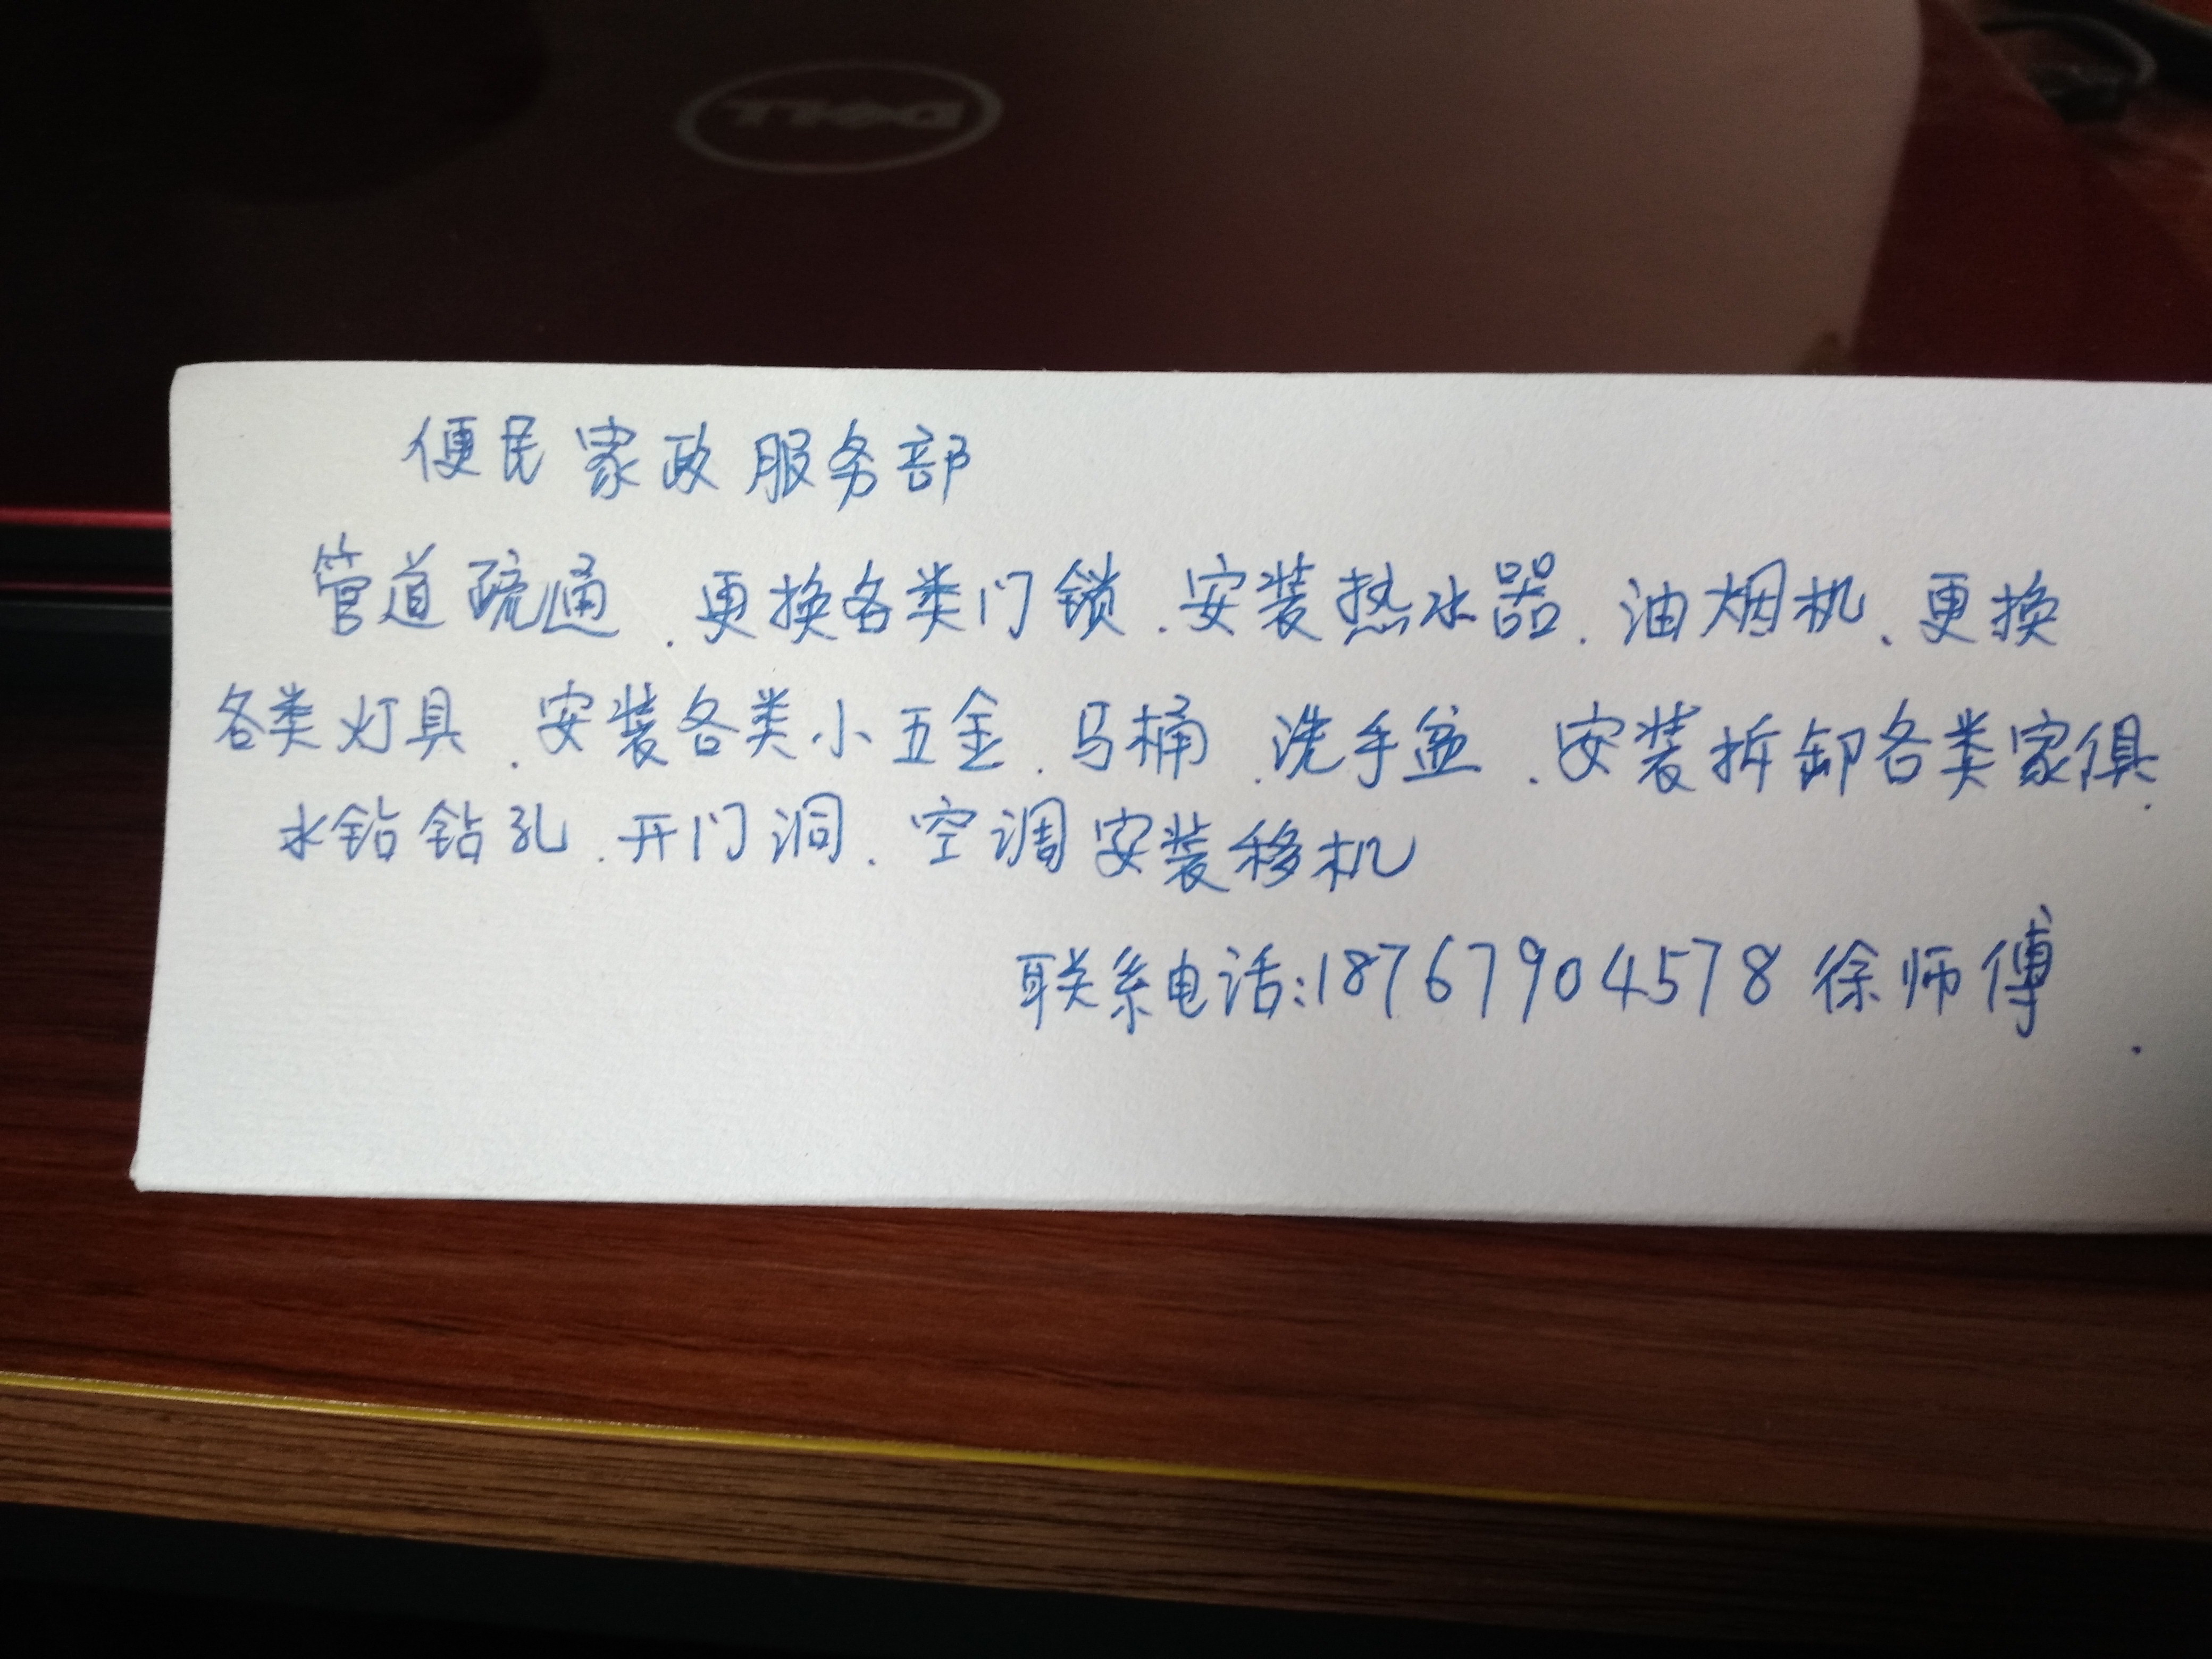 DELL
便民家政服务部
管道疏通、更换各类门锁、安装热水器、油烟机、更换
各类灯具、安装各类小五金、马桶、洗手盆、安装拆卸各类家俱、
水钻钻孔、开门洞、空调安装移机
联系电话:18767904578 徐师傅